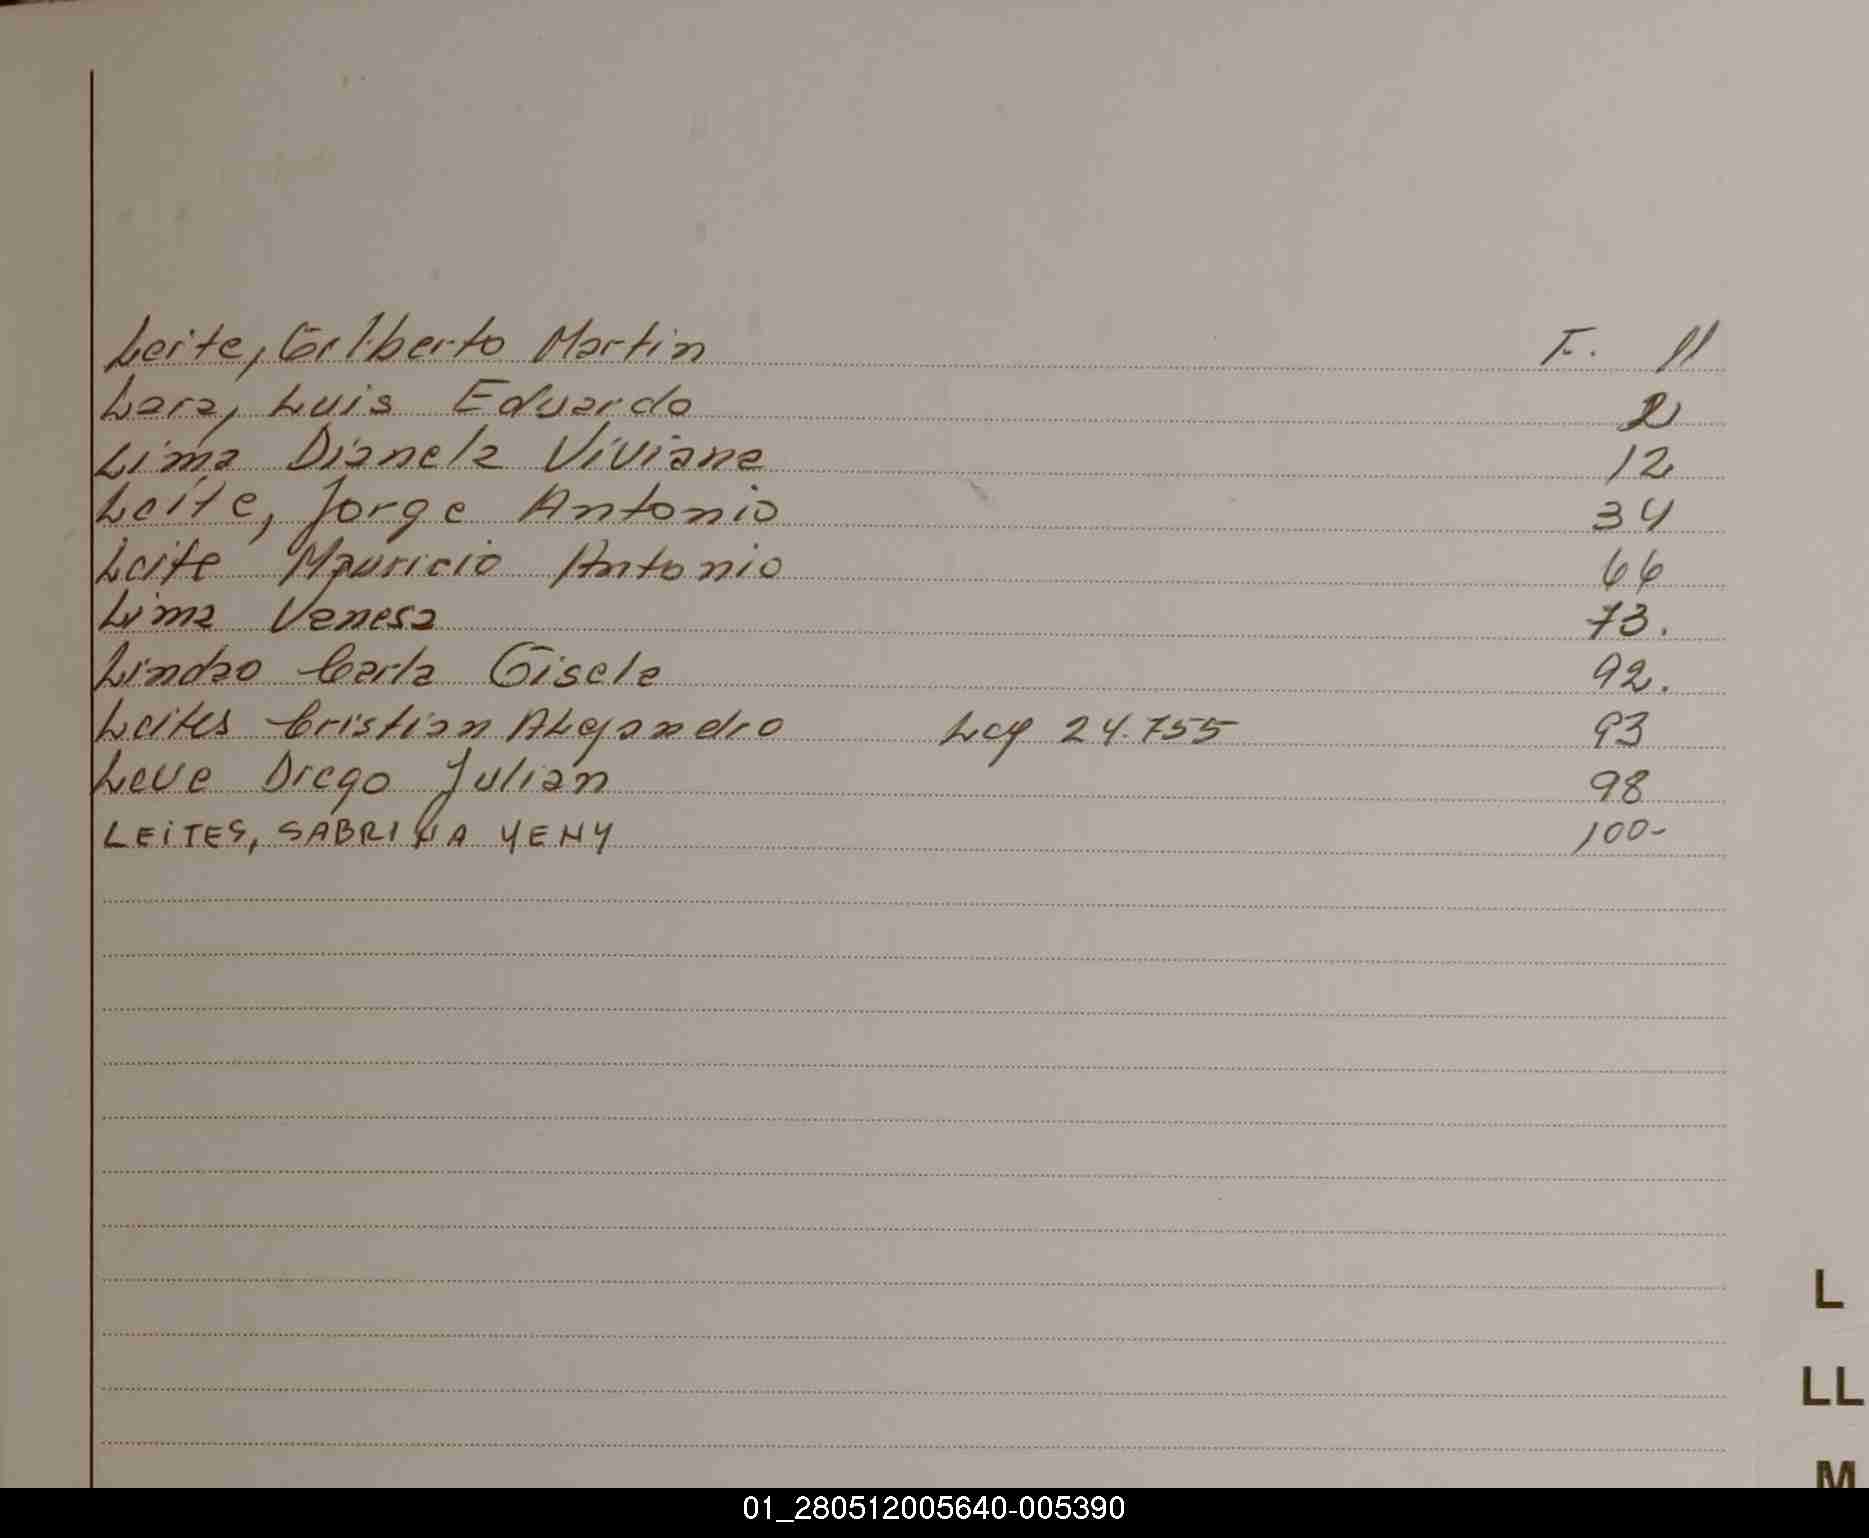 Leite, Gilberto Martin F. 11
Lara, Luis Eduardo 2
Lima Dianela Viviana 12
Leite, Jorge Antonio 34
Leite Mauricio Antonio 66
Lima Vanesa 73.
Lindao Carla Gisela 92.
Leites Cristian Alejandro Leg 24.755 93
Leve Diego Julian 98
LEITES, SABRINA YENY 100-
L
LL
M
01_280512005640-005390